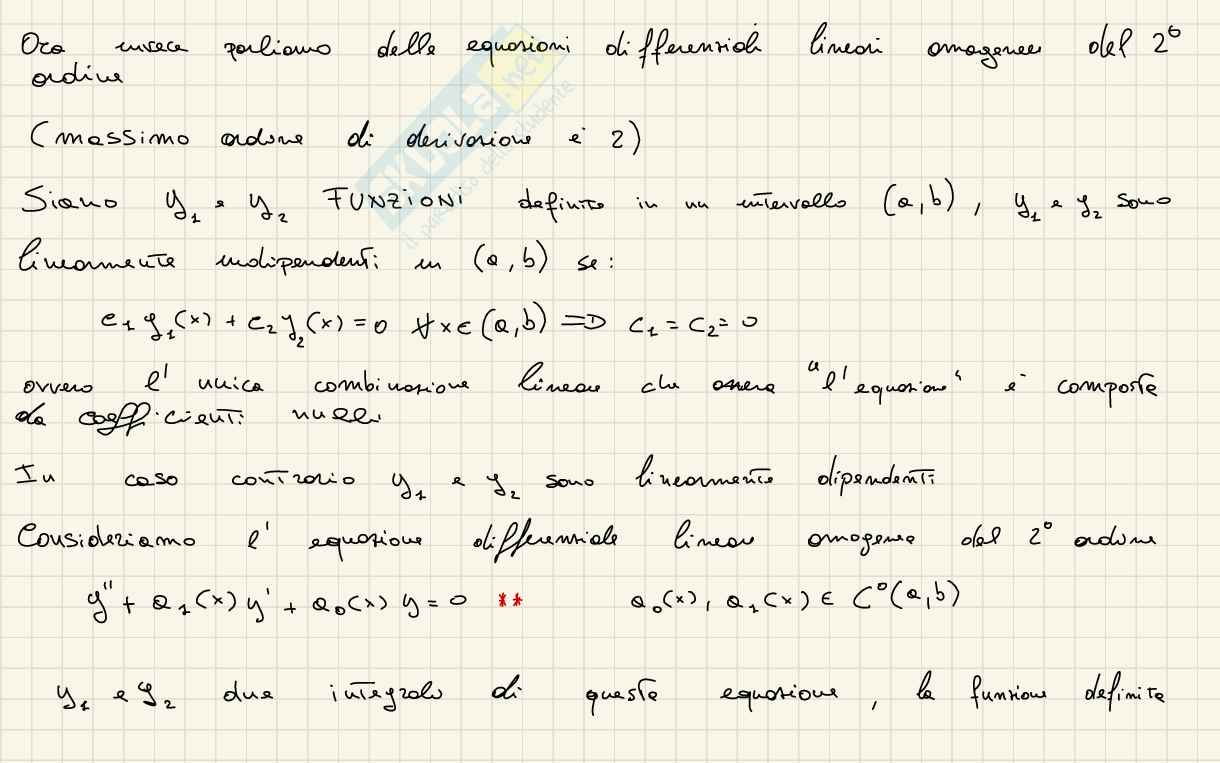 Ora invece parliamo delle equazioni differenziali lineari omogenee del 2°
ordine
(massimo ordine di derivazione è 2)
Siano y₁ e y₂ FUNZIONI definite in un intervallo (a,b), y₁ e y₂ sono
linearmente indipendenti in (a,b) se:
c₁y₁(x) + c₂y₂(x) = 0 ∀x∈(a,b) => c₁ = c₂ = 0
ovvero l' unica combinazione lineare che "l'equazione" è composta
da coefficienti nulli
In caso contrario y₁ e y₂ sono linearmente dipendenti
Consideriamo l' equazione differenziale lineare omogenea del 2° ordine
y'' + a₁(x)y' + a₀(x)y = 0 ** a₀(x), a₁(x) ∈ C⁰(a,b)
y₁ e y₂ due integrali di questa equazione, la funzione definita
SKUOLA.net
il paradiso dello studente